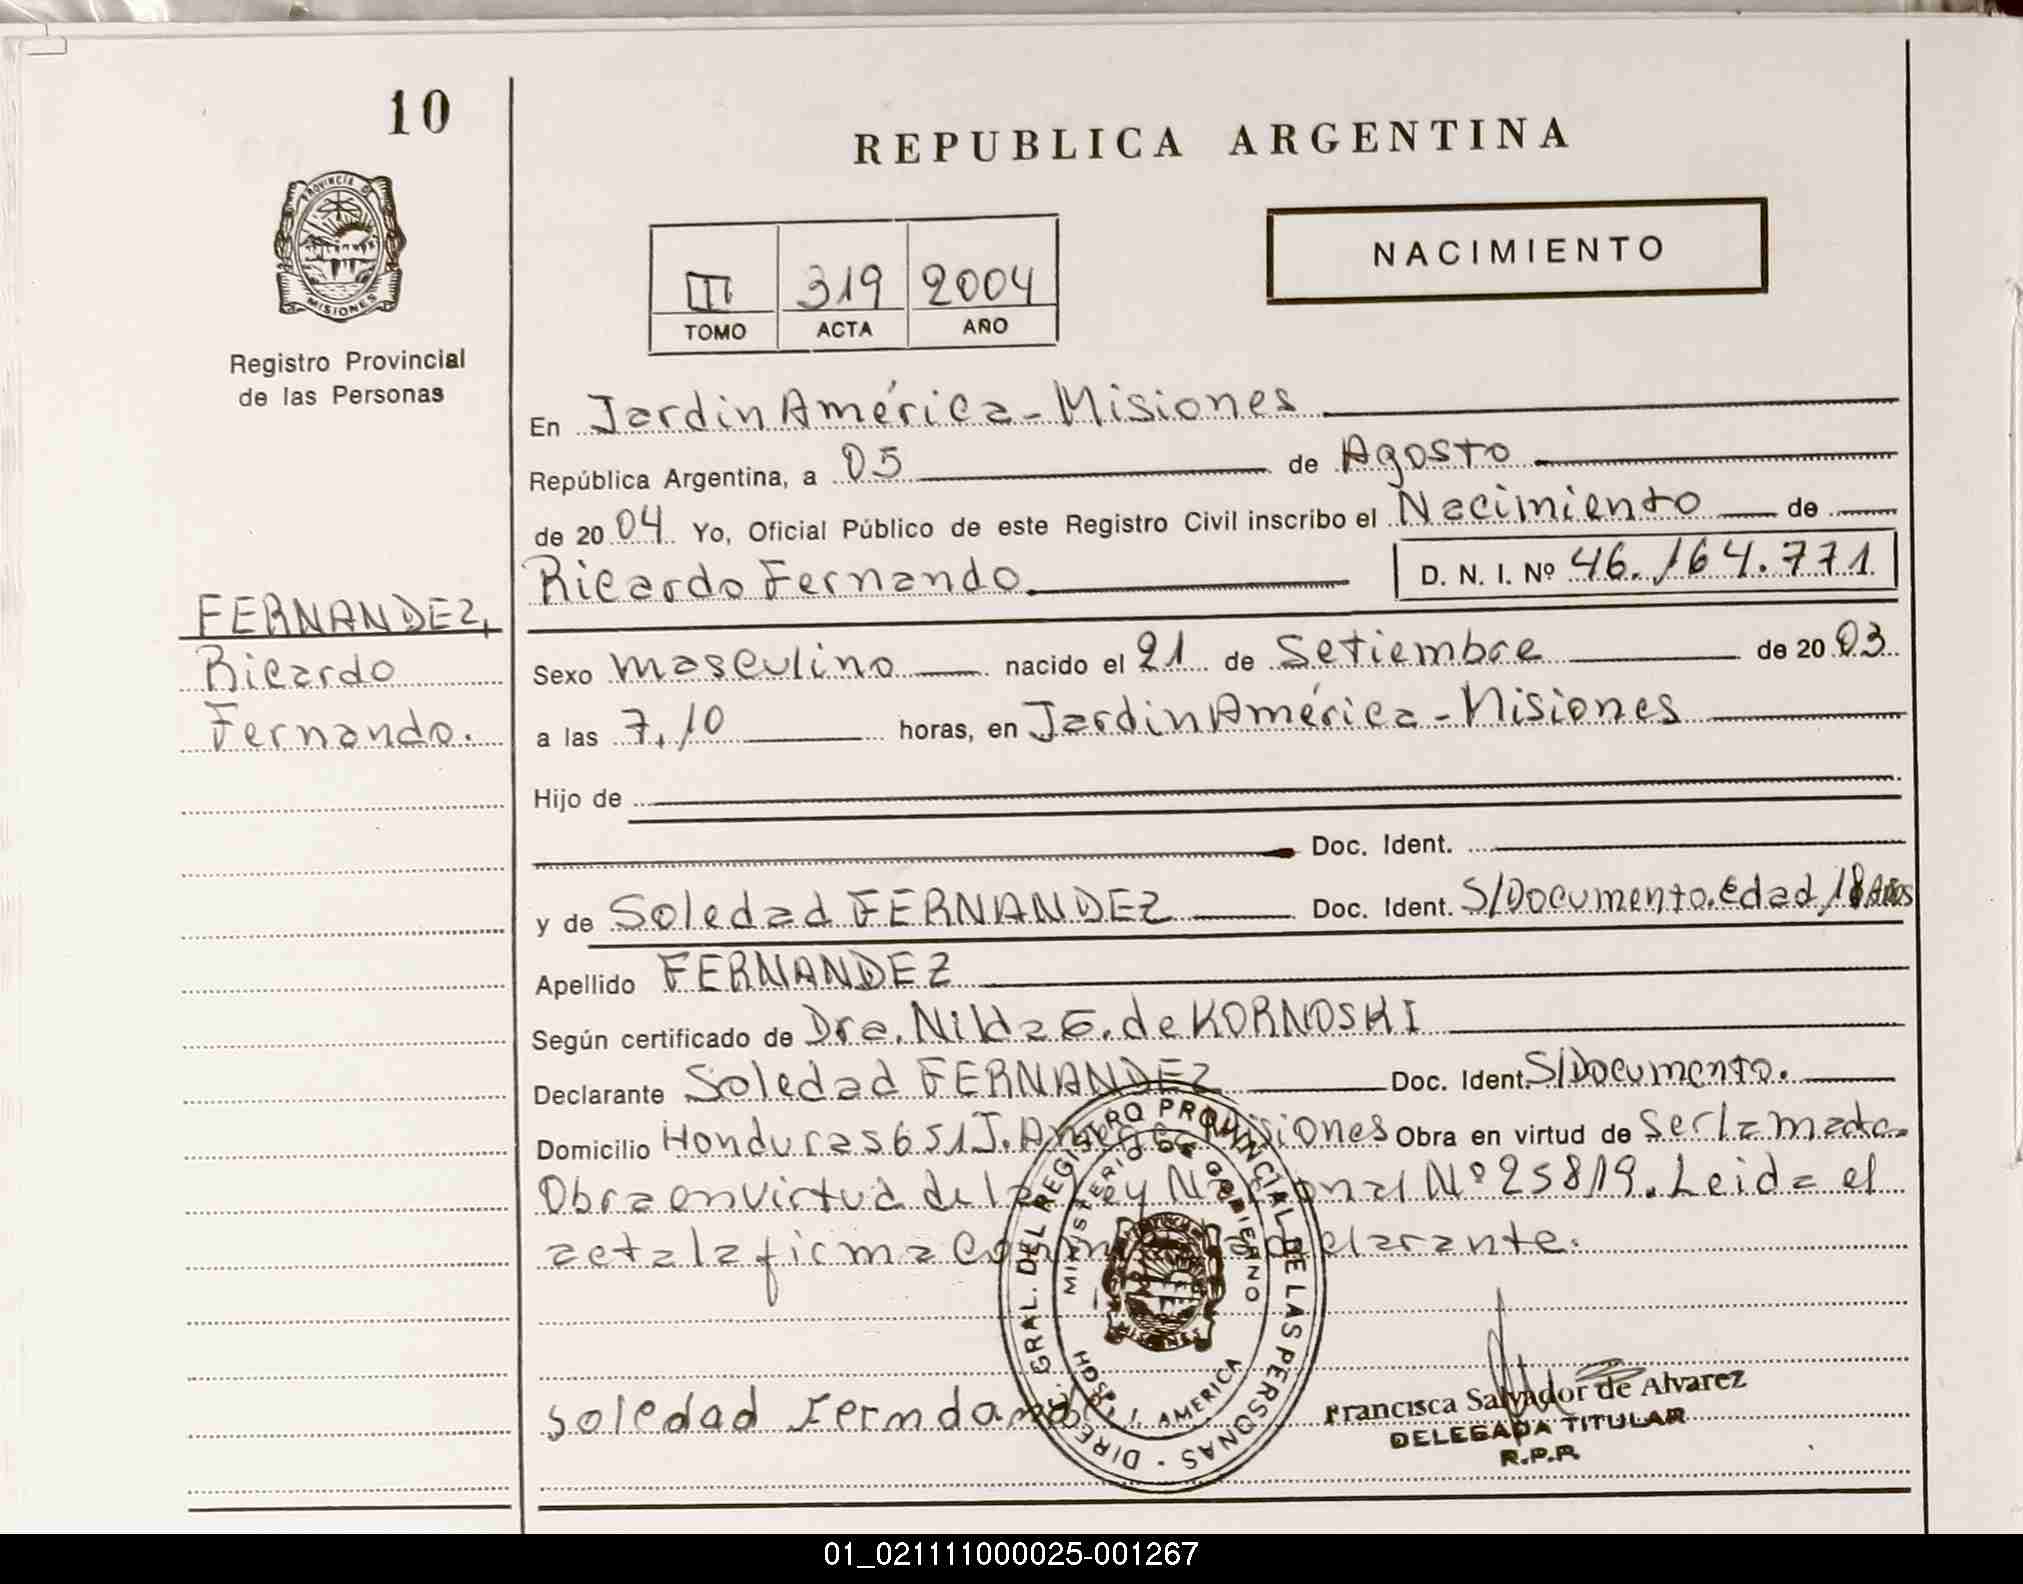 10
REPUBLICA ARGENTINA
PROVINCIA DE
MISIONES
NACIMIENTO
III 319 2004
TOMO ACTA AÑO
Registro Provincial
de las Personas
En Jardin América - Misiones
República Argentina, a 05 de Agosto
de 2004 Yo, Oficial Público de este Registro Civil inscribo el Nacimiento de
Ricardo Fernando D. N. I. Nº 46.164.771
FERNANDEZ,
Ricardo
Fernando.
Sexo masculino nacido el 21 de Setiembre de 2003
a las 7,10 horas, en Jardin América - Misiones
Hijo de
Doc. Ident.
y de Soledad FERNANDEZ Doc. Ident. S/Documento. edad 18 Años
Apellido FERNANDEZ
Según certificado de Dra. Nilda E. de KORNOSKI
Declarante Soledad FERNANDEZ Doc. Ident. S/Documento.
Domicilio Honduras 651 J. América Misiones Obra en virtud de ser la madre.
Obra en virtud de la Ley Nacional Nº 25819. Leida el
acta la firma la declarante.
DIREC. GRAL. DEL REGISTRO PROVINCIAL DE LAS PERSONAS
MINISTERIO DE GOBIERNO
MISIONES
HOSP. J. AMERICA
Soledad
Francisca Salvador de Alvarez
DELEGADA TITULAR
R.P.P.
01_021111000025-001267